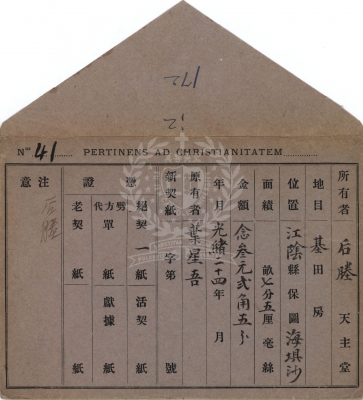 172
12
Nᵒˢ 41 PERTINENS AD CHRISTIANITATEM
所有者 后塍 天主堂
地目 基田房
位置 江陰縣保圖海填沙
面績 畝七分五厘毫絲
金額 念叁元弍角五分
年月 光緒二十四年 月
原有者 葉星吾
新契紙 字第 號
證 憑
絕契一紙 活契 紙
代方單 紙 獻據 紙
老契 紙 紙
注意
后塍